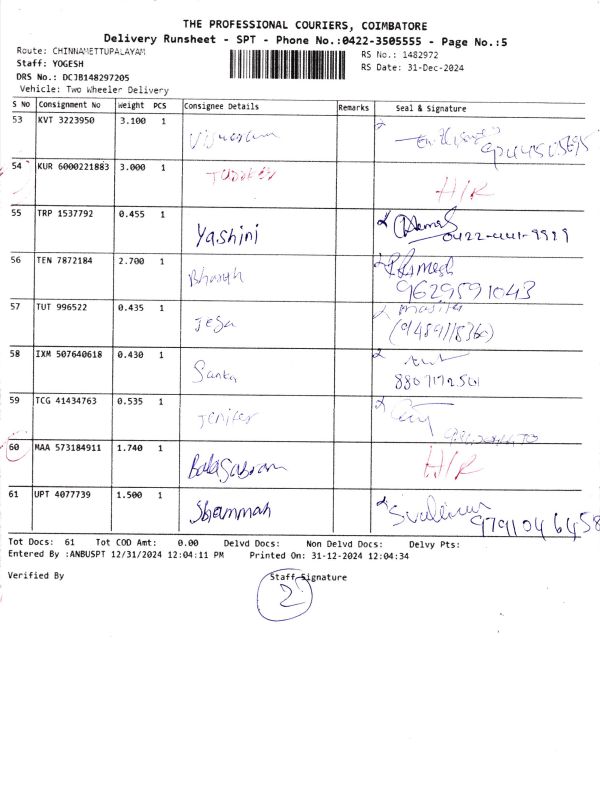 THE PROFESSIONAL COURIERS, COIMBATORE
Delivery Runsheet - SPT - Phone No.:0422-3505555 - Page No.:5
Route: CHINNAMETTUPALAYAM
RS No.: 1482972
Staff: YOGESH
RS Date: 31-Dec-2024
DRS No.: DCJB148297205
Vehicle: Two Wheeler Delivery
S No Consignment No Weight PCS Consignee Details Remarks Seal & Signature
53 KVT 3223950 3.100 1
54 KUR 6000221883 3.000 1 H/R
55 TRP 1537792 0.455 1 Yashini 0422-441-9999
56 TEN 7872184 2.700 1 Bharath Ramesh
9629591043
57 TUT 996522 0.435 1 Jega
58 IXM 507640618 0.430 1 Sanka
59 TCG 41434763 0.535 1 Jenifer
60 MAA 573184911 1.740 1 H/R
61 UPT 4077739 1.500 1 Shammah
9791046458
Tot Docs: 61 Tot COD Amt: 0.00 Delvd Docs: Non Delvd Docs: Delvy Pts:
Entered By :ANBUSPT 12/31/2024 12:04:11 PM Printed On: 31-12-2024 12:04:34
Verified By Staff Signature
2